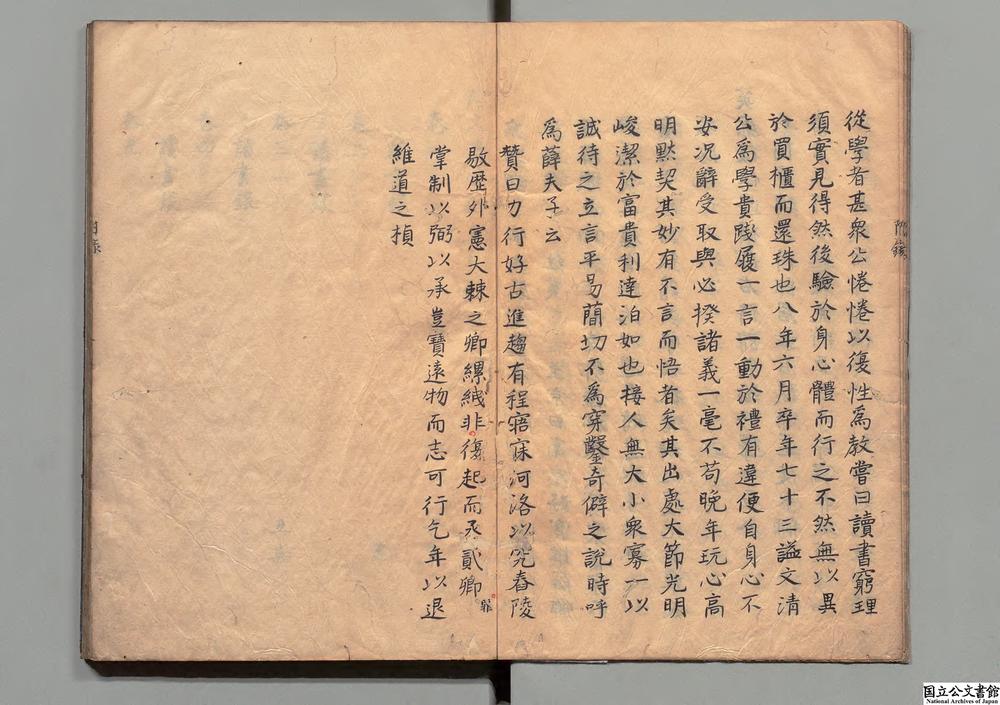 附錄
從學者甚衆公惓惓以復性爲教嘗曰讀書窮理
須實見得然後驗於身心體而行之不然無以異
於買櫃而還珠也八年六月卒年七十三謚文清
公爲學貴踐履一言一動於禮有違便自身心不
安况辭受取與必揆諸義一毫不苟晚年玩心高
明默契其妙有不言而悟者矣其出處大節光明
峻潔於富貴利達泊如也接人無大小衆寡一以
誠待之立言平易簡切不爲穿鑿奇僻之說時呼
爲薛夫子云
贊曰力行好古進趨有程寤寐河洛以究舂陵
敭歷外憲大棘之卿縲絏非傷起而丞貳卿
罪
掌制以弼以承豈寶遠物而志可行乞年以退
維道之楨
目錄
国立公文書館
National Archives of Japan